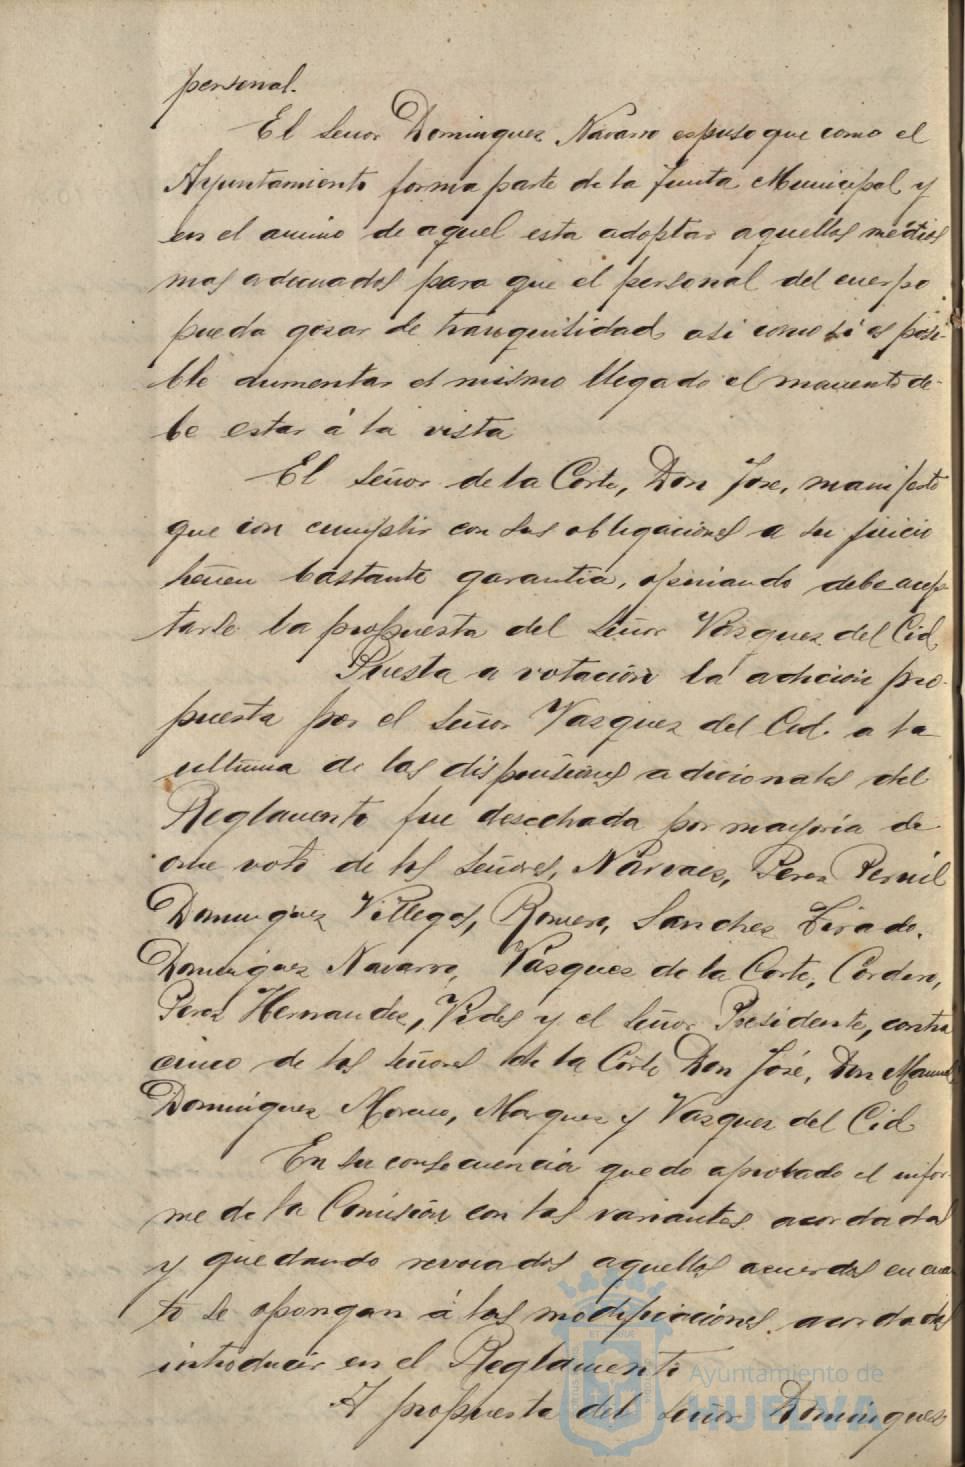 personal.
El Señor Dominguez Navarro espuso que como el
Ayuntamiento forma parte de la Junta Municipal y
en el animo de aquel esta adoptar aquellos medios
mas adecuados para que el personal del cuerpo
pueda gozar de tranquilidad asi como si es posi-
ble aumentar el mismo llegado el momento de-
be estar á la vista
El Señor de la Corte, Don Jose, manifestó
que con cumplir con sus obligaciones a su juicio
tienen bastante garantia, opinando debe acep-
tarse la propuesta del Señor Vazquez del Cid
Puesta a votación la adición pro-
puesta por el Señor Vazquez del Cid. a la
ultima de las disposiciones adicionales del
Reglamento fue desechada por mayoria de
once voto de los Señores, Narvaez, Perez Pernil
Dominguez Villegas, Romero, Sanchez Tirado,
Dominguez Navarro, Vazquez de la Corte, Cordero,
Perez Hernandez, Vides y el Señor Presidente, contra
cinco de los Señores de la Corte Don José, Don Manuel
Dominguez Moreno, Marquez y Vazquez del Cid
En su consecuencia quedo aprobado el infor-
me de la Comisión con las variantes acordadas
y quedando revocados aquellos acuerdos en cuan-
to se opongan á las modificaciones acordadas
introducir en el Reglamento
A propuesta del Señor Dominguez
Ayuntamiento de
HUELVA